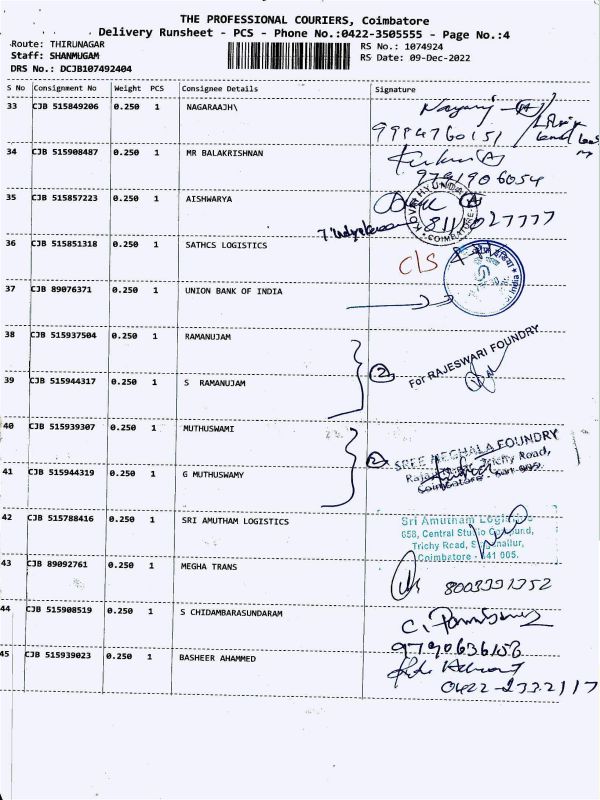 THE PROFESSIONAL COURIERS, Coimbatore
Delivery Runsheet - PCS - Phone No.:0422-3505555 - Page No.:4
Route: THIRUNAGAR
RS No.: 1074924
Staff: SHANMUGAM
RS Date: 09-Dec-2022
DRS No.: DCJB107492404
S No Consignment No Weight PCS Consignee Details Signature
33 CJB 515849206 0.250 1 NAGARAAJH\
9994760151
34 CJB 515908487 0.250 1 MR BALAKRISHNAN
9791906054
35 CJB 515857223 0.250 1 AISHWARYA
KOVAI HYUNDAI
COIMBATORE
36 CJB 515851318 0.250 1 SATHCS LOGISTICS
C/S
37 CJB 89076371 0.250 1 UNION BANK OF INDIA
38 CJB 515937504 0.250 1 RAMANUJAM
2 For RAJESWARI FOUNDRY
39 CJB 515944317 0.250 1 S RAMANUJAM
40 CJB 515939307 0.250 1 MUTHUSWAMI
2 SREE MEGHALA FOUNDRY
Trichy Road,
Coimbatore - 641 005.
41 CJB 515944319 0.250 1 G MUTHUSWAMY
42 CJB 515788416 0.250 1 SRI AMUTHAM LOGISTICS
Sri Amutham Logistics
658, Central Studio Compound,
Trichy Road, Singanallur,
Coimbatore - 641 005.
43 CJB 89092761 0.250 1 MEGHA TRANS
44 CJB 515908519 0.250 1 S CHIDAMBARASUNDARAM
9790636156
45 CJB 515939023 0.250 1 BASHEER AHAMMED
0422-2332117